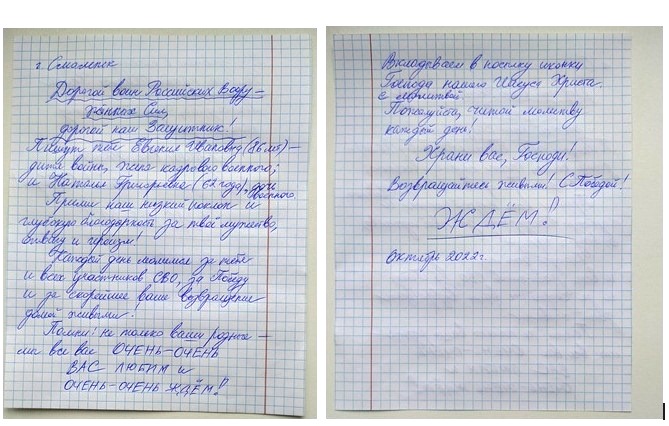 г. Смоленск
Дорогой воин Российских Воору-
жённых Сил,
дорогой наш Защитник!
Пишут тебе Евгения Ивановна (86 лет) –
дитя войны, жена кадрового военного;
и Наталия Григорьевна (62 года), дочь
военного.
Прими наш низкий поклон и
глубокую благодарность за твоё мужество,
отвагу и героизм!
Каждый день молимся за тебя
и всех участников СВО, за Победу
и за скорейшее ваше возвращение
домой живыми!
Помни! не только ваши родные –
мы все вас ОЧЕНЬ-ОЧЕНЬ
ВАС ЛЮБИМ и
ОЧЕНЬ-ОЧЕНЬ ЖДЁМ!!
Вкладываем в посылку иконку
Господа нашего Иисуса Христа
с молитвой.
Пожалуйста, читай молитву
каждый день!
Храни вас, Господи!
Возвращайтесь живыми! С Победой!
ЖДЁМ!!
Октябрь 2022г.